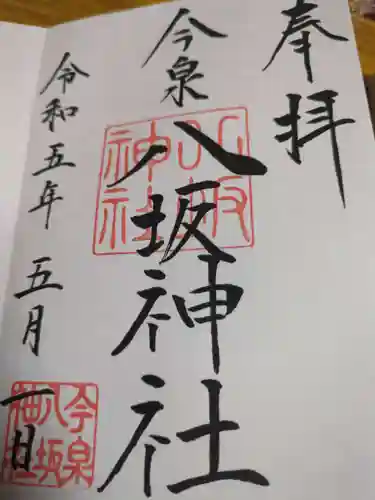 奉拝
今泉
八坂神社
令和五年五月一日
八坂神社
今泉八坂神社